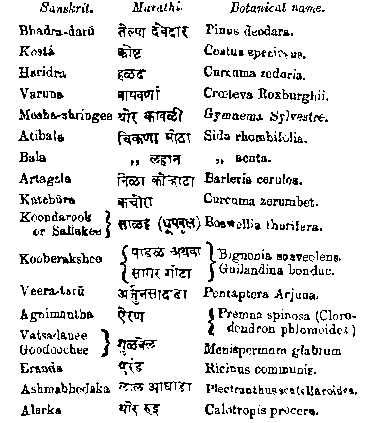 Sanskrit. Marathi. Botanical name.
Bhadra-darū तेल्या देवदार Pinus deodara.
Kostá कोष्ट Costus speciosus.
Haridra हळद Curcuma zedaria.
Varuna वायवर्णा Cratæva Roxburghii.
Mesha-shringee थोर कावळी Gymnema Sylvestre.
Atibala चिकणा मोठा Sida rhombifolia.
Bala „ लहान „ acuta.
Artagala निळा कोऱ्हाटा Barleria cerulea.
Katchūra कचोरा Curcuma zerumbet.
Koondarook
or Sallakee साळई (धूपवृक्ष) Boswellia thurifera.
पाडळ अथवा Bignonia soaveolens.
Kooberakshee
सागर गोटा Guilandina bonduc.
Veera-tarū अर्जुनसादडा Pentaptera Arjuna.
Agnimantha ऐरण Premna spinosa (Clero-
dendron phlomoides)
Vatsadanee
Goodoochee गुळवेल Menispermum glabrum
Eranda एरंड Ricinus communis.
Ashmabhedaka लाल आघाडा Plectranthus scutellaroides.
Alarka थोर रुइ Calotropis procera.